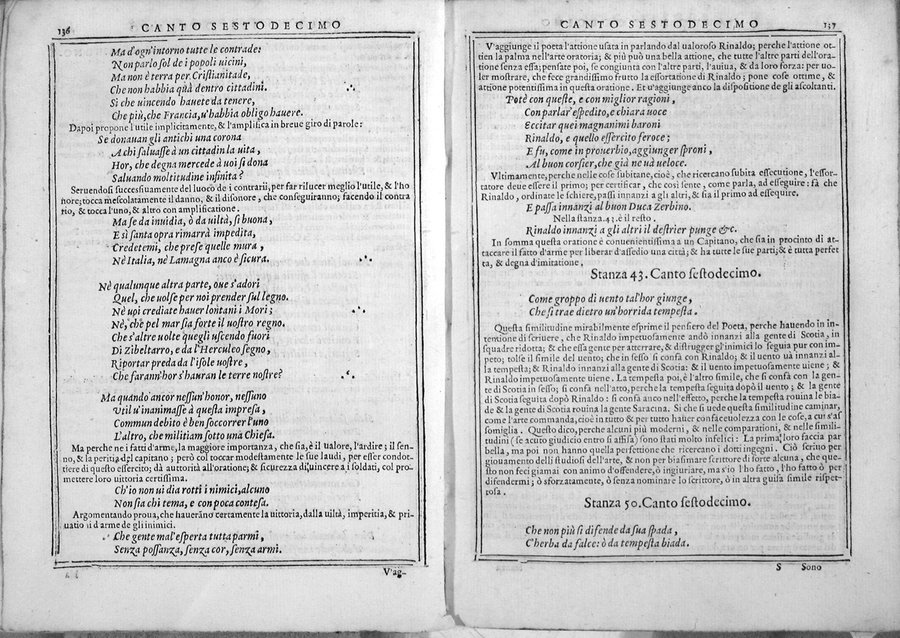 136 CANTO SESTODECIMO
Ma d'ogn'intorno tutte le contrade:
Non parlo sol de i popoli uicini,
Ma non è terra per Cristianitade,
Che non habbia quà dentro cittadini.
Si che uincendo hauete da tenere,
Che più, che Francia, u'habbia obligo hauere.
Dapoi propone l'utile implicitamente, & l'amplifica in breue giro di parole:
Se donauan gli antichi una corona
A chi saluasse à un cittadin la uita,
Hor, che degna mercede à uoi si dona
Saluando moltitudine infinita?
Seruendosi successiuamente del luoco de i contrarij, per far rilucer meglio l'utile, & l'ho
nore; tocca mescolatamente il danno, & il disonore, che conseguiranno; facendo il contra
rio, & tocca l'uno, & altro con amplificatione.
Ma se da inuidia, ò da uiltà, sì buona,
E sì santa opra rimarrà impedita,
Credetemi, che prese quelle mura,
Nè Italia, nè Lamagna anco è sicura.
Nè qualunque altra parte, oue s'adori
Quel, che uolse per noi prender sul legno.
Nè uoi crediate hauer lontani i Mori;
Nè, che pel mar sia forte il uostro regno.
Che s'altre uolte quegli uscendo fuori
Di Zibeltarro, e da l'Herculeo segno,
Riportar preda da l'isole uostre,
Che farann'hor s'hauran le terre nostre?
Ma quando ancor nessun'honor, nessuno
Util u'inanimasse à questa impresa,
Commun debito è ben soccorrer l'uno
L'altro, che militiam sotto una Chiesa.
Ma perche ne i fatti d'arme, la maggiore importanza, che sia, è il ualore, l'ardire; il sen-
no, & la peritia del capitano; però col toccar modestamente le sue laudi, per esser condot-
tiere di questo essercito; dà auttorità all'oratione; & sicurezza di uincere a i soldati, col pro
mettere loro uittoria certissima.
Ch'io non ui dia rotti i nimici, alcuno
Non sia chi tema, e con poca contesa.
Argomentando proua, che haueràno certamente la uittoria, dalla uiltà, imperitia, & pri-
uatio n d'arme de gli inimici.
Che gente mal'esperta tutta parmi,
Senza possanza, senza cor, senza armi.
V'ag-
CANTO SESTODECIMO 137
V'aggiunge il poeta l'attione usata in parlando dal ualoroso Rinaldo; perche l'attione ot-
tien la palma nell'arte oratoria; & più può una bella attione, che tutte l'altre parti dell'ora-
tione senza essa; pensate poi, se congiunta con l'altre parti, l'auiua, & da loro forza: per uo-
ler mostrare, che fece grandissimo frutto la essortatione di Rinaldo; pone cose ottime, &
attione potentissima in questa oratione. Et u'aggiunge anco la dispositione de gli ascoltanti.
Potè con queste, e con miglior ragioni,
Con parlar'espedito, e chiara uoce
Eccitar quei magnanimi baroni
Rinaldo, e quello essercito feroce;
E fu, come in prouerbio, aggiunger sproni,
Al buon corsier, che già ne uà ueloce.
Vltimamente, perche nelle cose subitane, cioè, che ricercano subita essecutione, l'essor-
tatore deue essere il primo; per certificar, che così sente, come parla, ad esseguire: fà che
Rinaldo, ordinate le schiere, passi innanzi a gli altri, & sia il primo ad essequire.
E passa innanzi al buon Duca Zerbino.
Nella stanza.43. è il resto.
Rinaldo innanzi a gli altri il destrier punge &c.
In somma questa oratione è conuenientissima a un Capitano, che sia in procinto di at-
taccare il fatto d'arme per liberar d'assedio una città; & ha tutte le sue parti; & è tutta perfet
ta, & degna d'imitatione.
Stanza 43. Canto sestodecimo.
Come groppo di uento tal'hor giunge,
Che si trae dietro un'horrida tempesta.
Questa similitudine mirabilmente esprime il pensiero del Poeta, perche hauendo in in-
tentione di scriuere, che Rinaldo impetuosamente andò innanzi alla gente di Scotia, in
squadre ridotta; & che essa gente per atterrare, & distrugger gl'inimici lo seguia pur con im-
peto; tolse il simile del uento; che in sesso si confà con Rinaldo; & il uento uà innanzi al-
la tempesta; & Rinaldo innanzi alla gente di Scotia: & il uento impetuosamente uiene; &
Rinaldo impetuosamente uiene. La tempesta poi, è l'altro simile, che si confà con la gen-
te di Scotia in sesso; si confà nell'atto, perche la tempesta seguita dopò il uento; & la gente
di Scotia seguita dopò Rinaldo: si confà anco nell'effetto, perche la tempesta rouina le bia-
de & la gente di Scotia rouina la gente Saracina. Si che si uede questa similitudine caminar,
come l'arte commanda, cioè in tutto & per tutto hauer confaceuolezza con le cose, a cui s'as
somiglia. Questo dico, perche alcuni più moderni, & nelle comparationi, & nelle simili-
tudini (se acuto giudicio entro si affisa) sono stati molto infelici: La prima loro faccia par
bella, ma poi non hanno quella perfettione che ricercano i dotti ingegni. Ciò scritto per
giouamento delli studiosi dell'arte, & non per biasimare scritture di forte alcuna, che que-
sto non feci giamai con animo d'offendere, ò ingiuriare, ma s'io l'ho fatto, l'ho fatto ò per
difendermi; ò sforzatamente, ò senza nominare lo scrittore, ò in altra guisa simile rispet-
tosa.
Stanza 50. Canto sestodecimo.
Che non più si difende da sua spada,
C'herba da falce: ò da tempesta biada.
S Sono